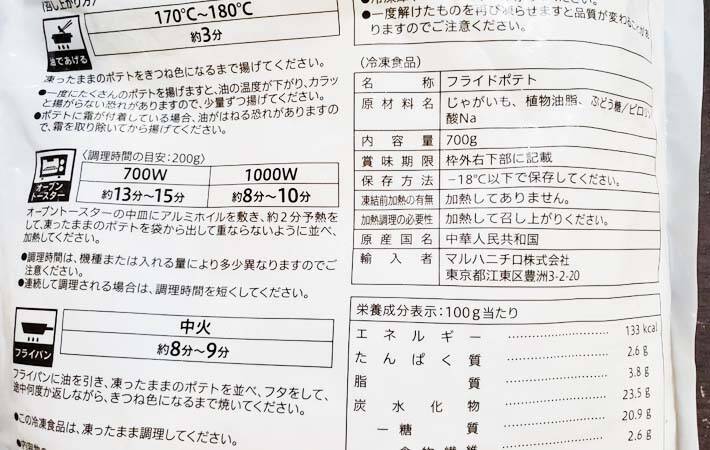 170℃～180℃
約3分
油であげる
凍ったままのポテトをきつね色になるまで揚げてください。
●一度にたくさんのポテトを揚げますと、油の温度が下がり、カラッ
と揚がらない恐れがありますので、少量ずつ揚げてください。
●ポテトに霜が付着している場合、油がはねる恐れがありますの
で、霜を取り除いてから揚げてください。
〈調理時間の目安:200g〉
700W 1000W
約13分～15分 約8分～10分
オーブン
トースター
オーブントースターの中皿にアルミホイルを敷き、約2分予熱を
して、凍ったままのポテトを袋から出して重ならないように並べ、
加熱してください。
●調理時間は、機種または入れる量により多少異なりますのでご
注意ください。
●連続して調理される場合は、調理時間を短くしてください。
中火
約8分～9分
フライパン
フライパンに油を引き、凍ったままのポテトを並べ、フタをして、
途中何度か返しながら、きつね色になるまで焼いてください。
●この冷凍食品は、凍ったまま調理してください。
●一度解けたものを再び凍らせますと品質が変わることがあ
りますのでご注意ください。
〈冷凍食品〉
名称 フライドポテト
原材料名 じゃがいも、植物油脂、ぶどう糖／ピロリン
酸Na
内容量 700g
賞味期限 枠外右下部に記載
保存方法 −18℃以下で保存してください。
凍結前加熱の有無 加熱してありません。
加熱調理の必要性 加熱して召し上がりください。
原産国名 中華人民共和国
輸入者 マルハニチロ株式会社
東京都江東区豊洲3-2-20
栄養成分表示:100g当たり
エネルギー 133 kcal
たんぱく質 2.6 g
脂質 3.8 g
炭水化物 23.5 g
－糖質 20.9 g
2.6 g